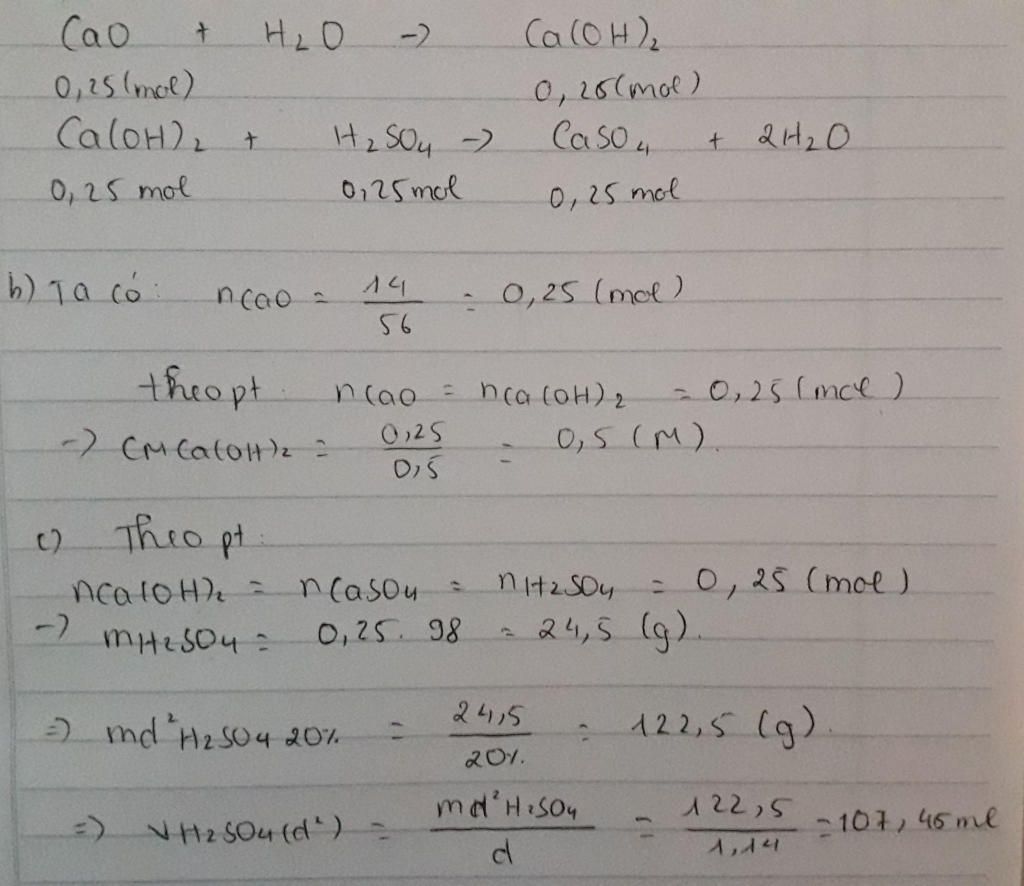 CaO + H2O -> Ca(OH)2
0,25(mol) 0,25(mol)
Ca(OH)2 + H2SO4 -> CaSO4 + 2H2O
0,25 mol 0,25mol 0,25 mol
b) Ta có: nCaO = 14/56 = 0,25 (mol)
theo pt: nCaO = nCa(OH)2 = 0,25 (mol)
-> CM Ca(OH)2 = 0,25/0,5 = 0,5 (M).
c) Theo pt:
nCa(OH)2 = nCaSO4 = nH2SO4 = 0,25 (mol)
-> mH2SO4 = 0,25. 98 = 24,5 (g).
=> md² H2SO4 20% = 24,5/20% = 122,5 (g).
=> VH2SO4(d²) = md² H2SO4/d = 122,5/1,14 = 107,45 ml